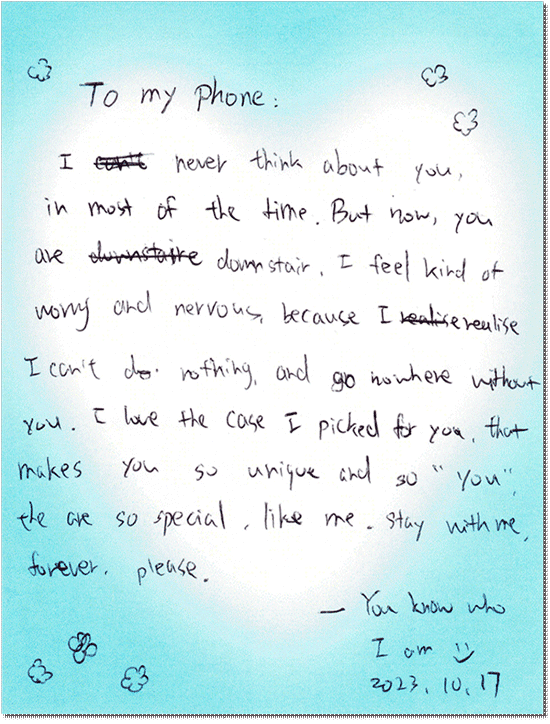 To my phone:
I can't never think about you,
in most of the time. But now, you
are downstaire downstair. I feel kind of
worry and nervous, because I realise realise
I can't do nothing, and go nowhere without
you. I love the case I picked for you, that
makes you so unique and so "you",
the are so special, like me. Stay with me,
forever. please.
— You know who
I am :)
2023.10.17